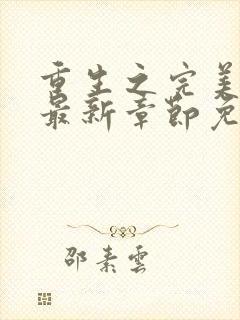 重生之完美
最新章节免
邵素雲